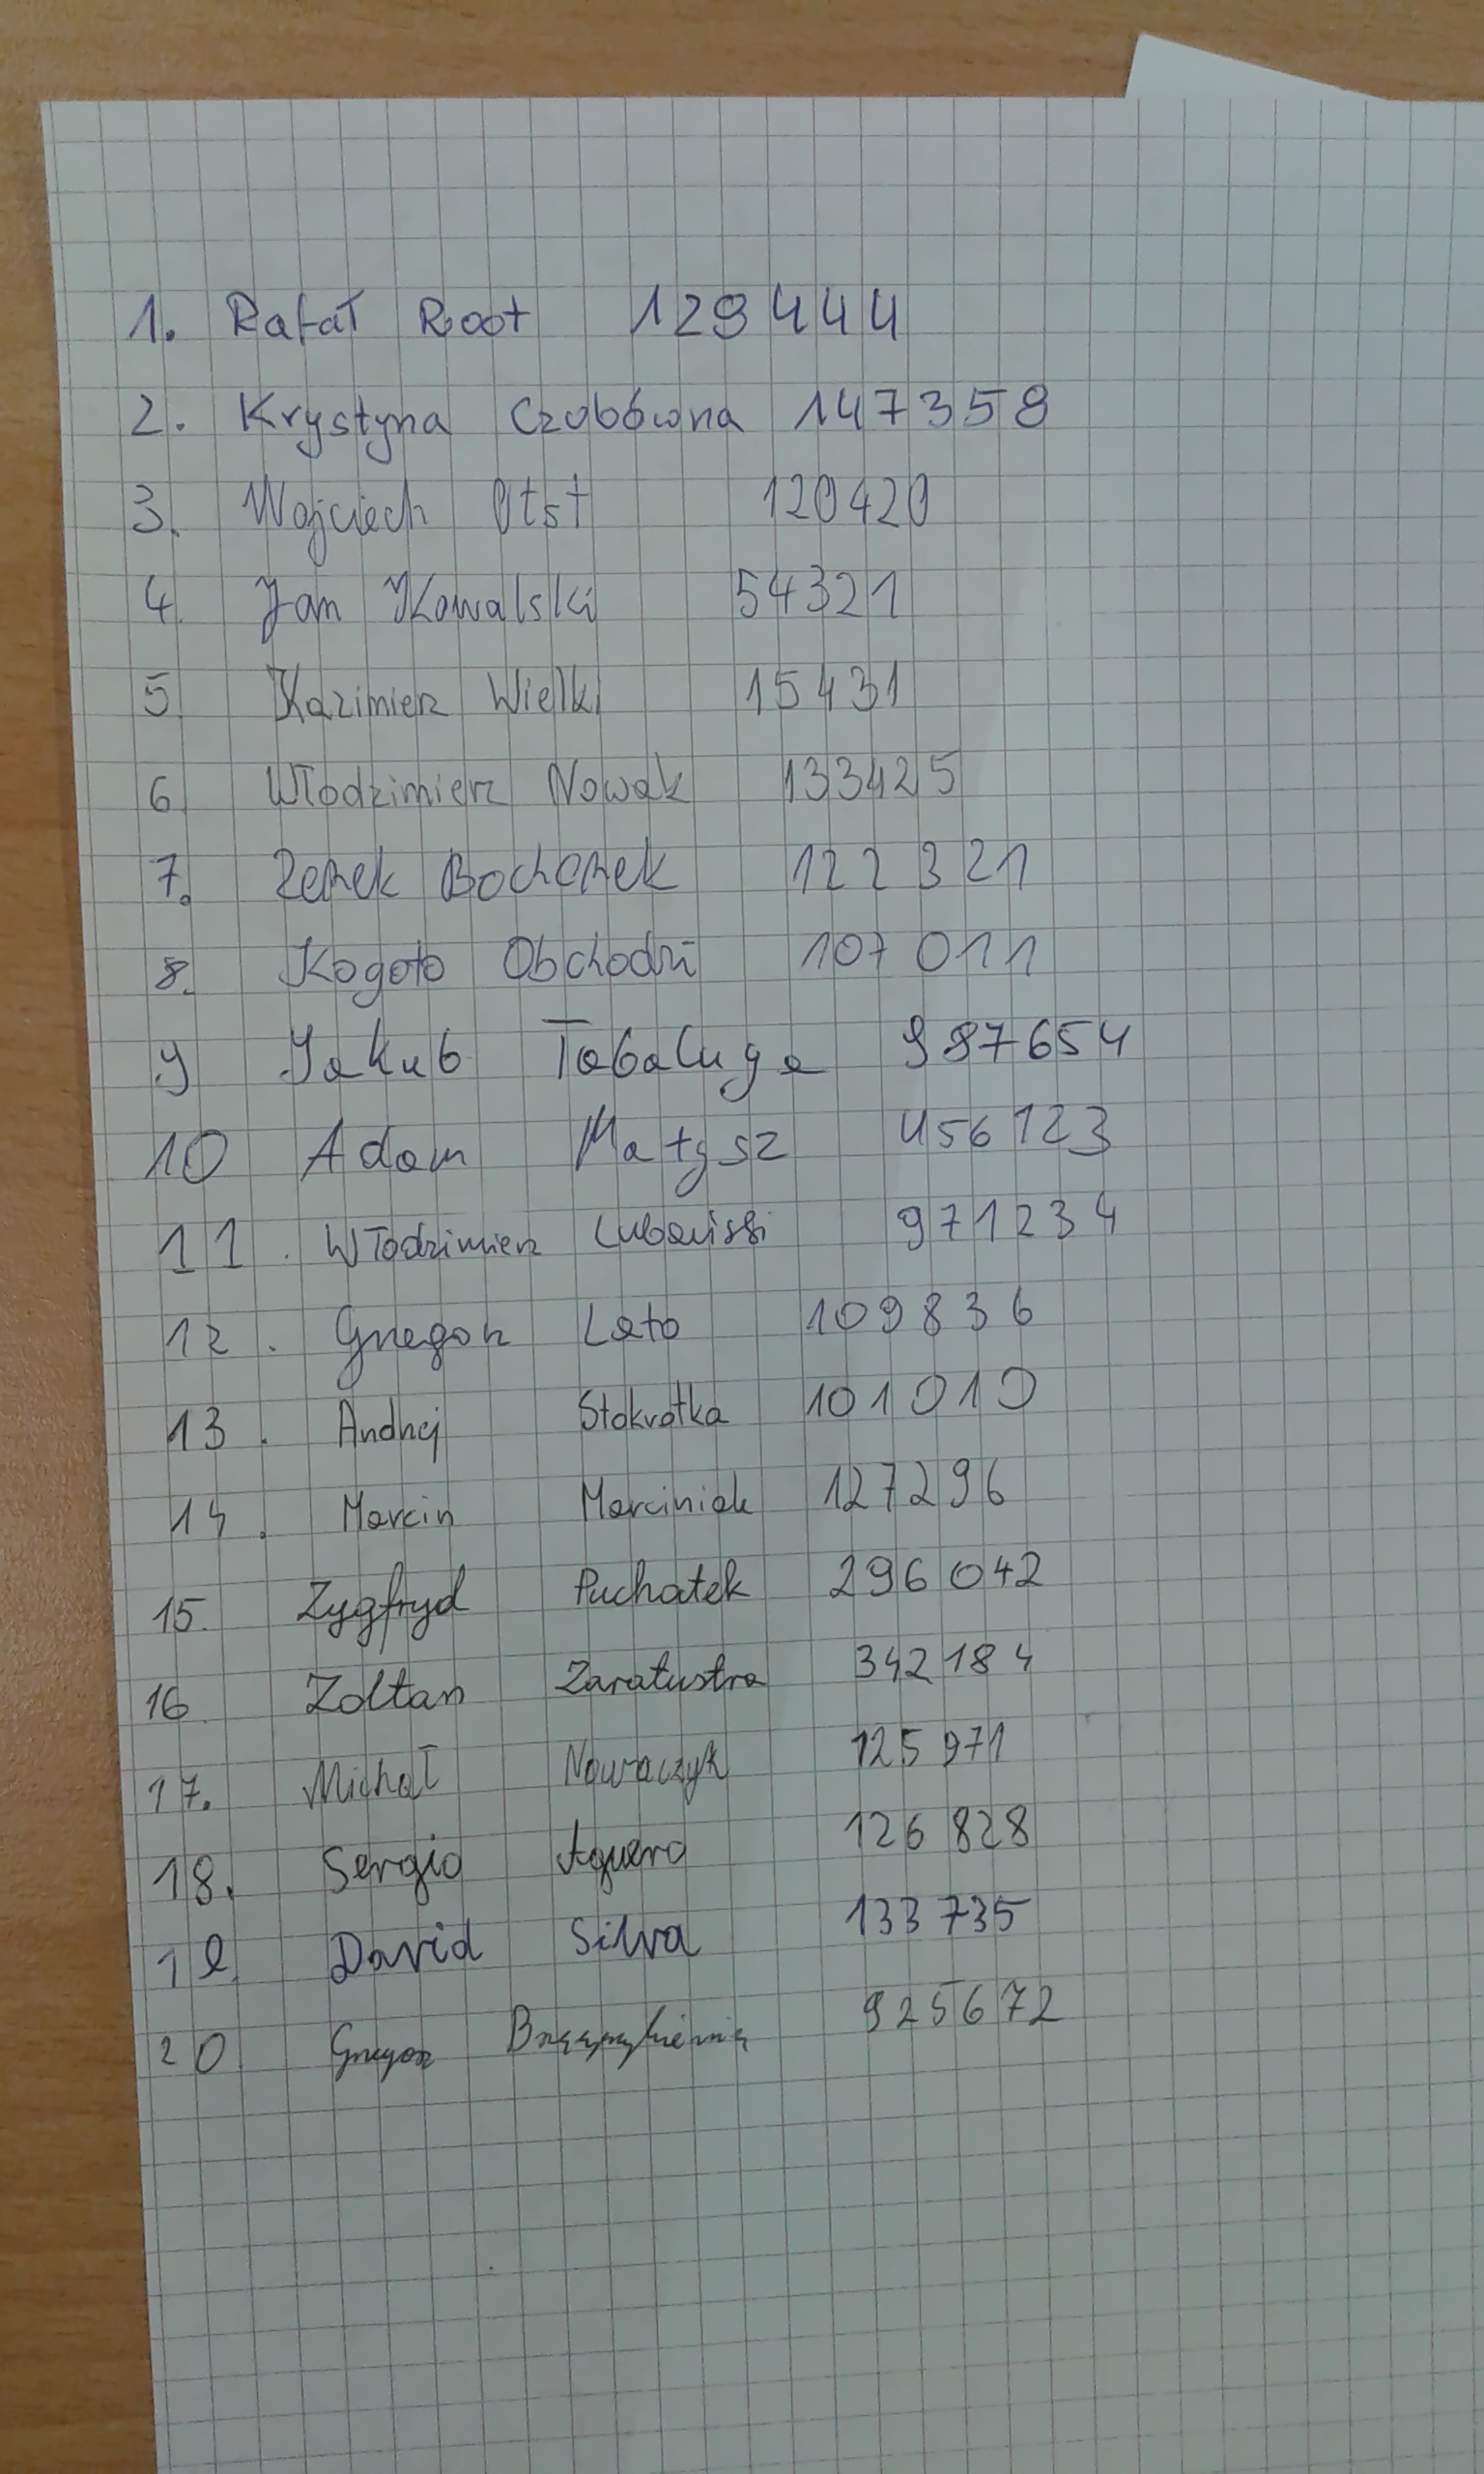 1. Rafał Root 129444
2. Krystyna Czubówna 147359
3. Wojciech Otst 120420
4. Jan Kowalski 54321
5 Kazimierz Wielki 15431
6 Włodzimierz Nowak 133425
7. Zenek Bochenek 122321
8. Kogoto Obchodzi 107011
9 Jakub Tabaluga 987654
10 Adam Małysz 456123
11. Włodzimierz Lubański 971234
12. Grzegorz Lato 109836
13. Andrzej Stokrotka 101010
14. Marcin Marciniak 127296
15. Zygfryd Puchatek 296042
16 Zoltan Zaratustra 342184
17. Michał Nowaczyk 125971
18. Sergio Aguero 126828
19 David Silva 133735
20 Grzegorz 925672